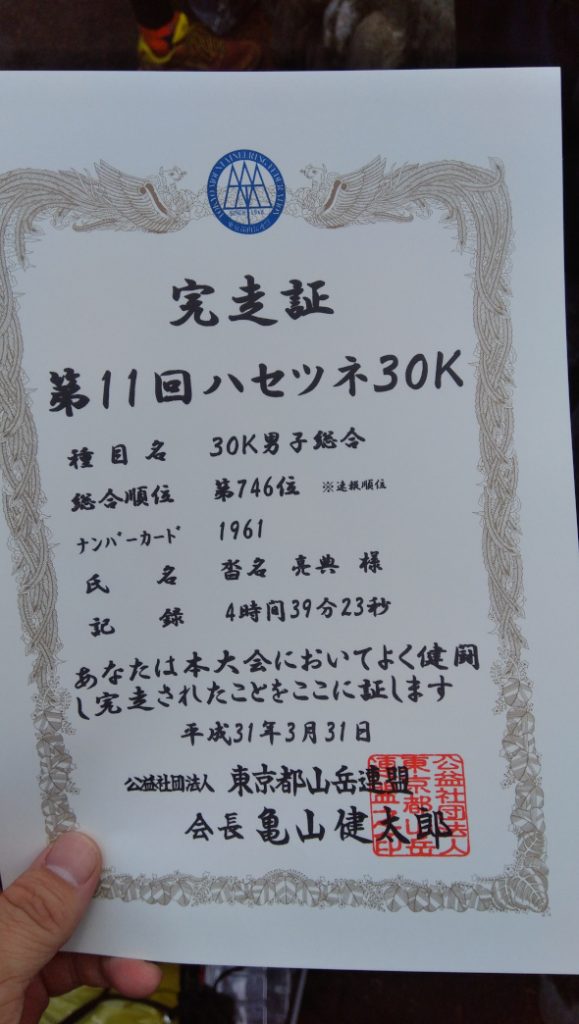 TOKYO MOUNTAINEERING FEDERATION
SINCE 1948
完走証
第11回ハセツネ30K
種目名 30K男子総合
総合順位 第746位 ※速報順位
ナンバーカード 1961
氏名 沓名 亮典 様
記録 4時間39分23秒
あなたは本大会においてよく健闘
し完走されたことをここに証します
平成31年3月31日
公益社団法人 東京都山岳連盟
会長 亀山健太郎
公益社団法人
東京都山岳
連盟之印